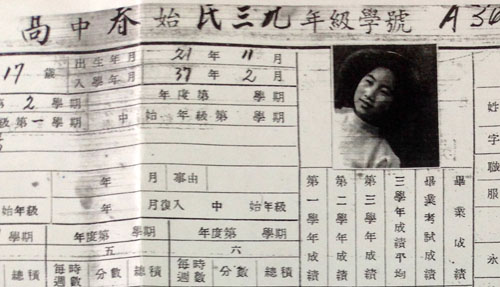 高中春始民三九年級學號 A30
17 歲 出生年月 21 年 11 月
入學年月 37 年 2 月
第 2 學期 年度第 學期
級第一學期 中 始 年級第 學期
年 月 事由
始年級 年 月復入 中 始年級
學期 年度第 學期 年度第 學期
五 六
總積 每時週數 分數 總積 每時週數 分數 總積
第一學年成績
第二學年成績
第三學年成績
三學年成績平均
畢業考試成績
畢業成績
姓
字
職
服
永